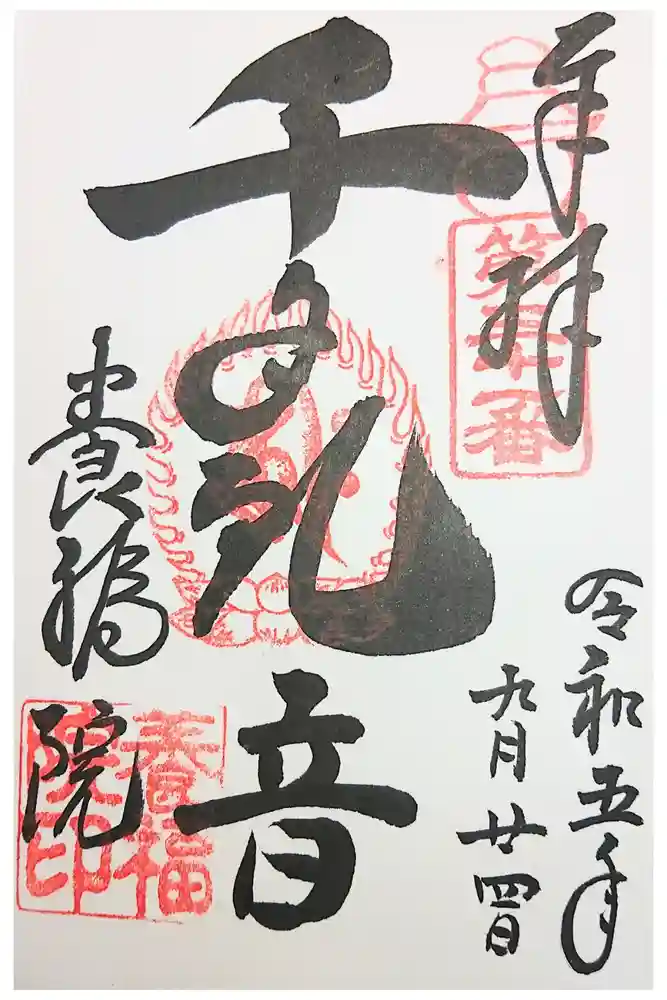 奉拝
令和五年
九月廿四日
千手観音
養福院
養福
院印